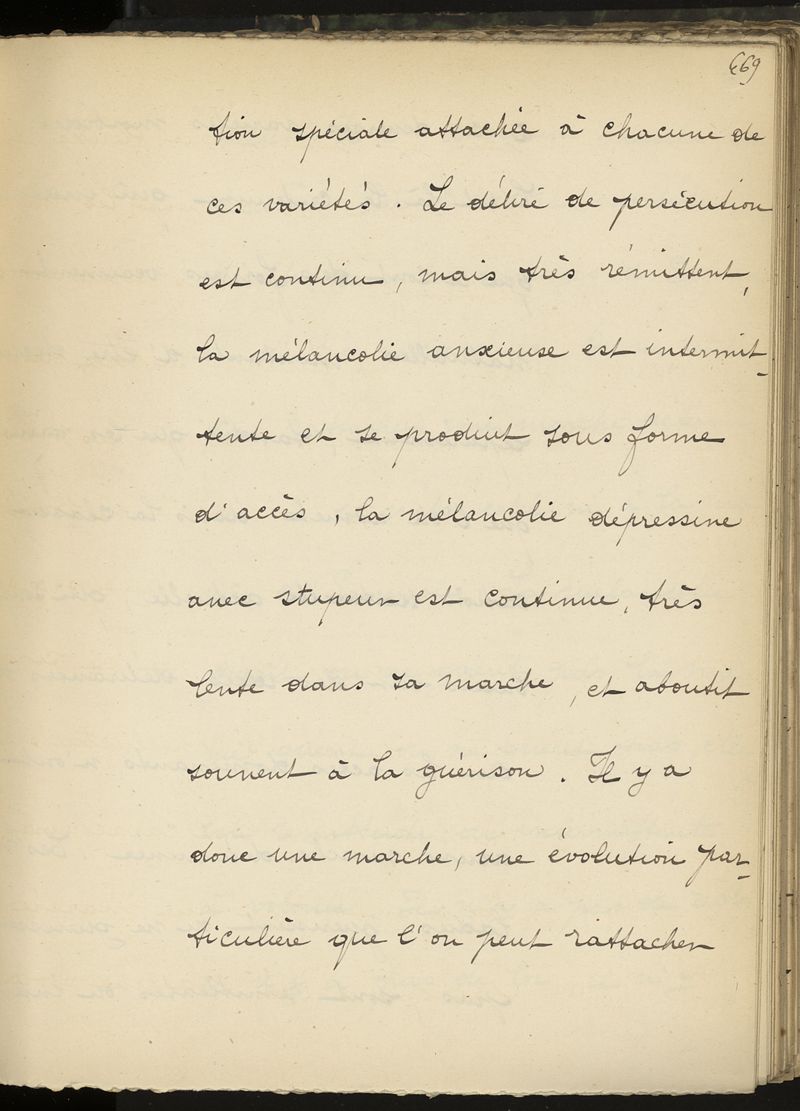 669
tion spéciale attachée à chacune de
ces variétés. Le délire de persécution
est continu, mais très rémittent,
la mélancolie anxieuse est intermit-
tente et se produit sous forme
d'accès, la mélancolie dépressive
avec stupeur est continue, très
lente dans sa marche, et aboutit
souvent à la guérison. Il y a
donc une marche, une évolution par-
ticulière que l'on peut rattacher